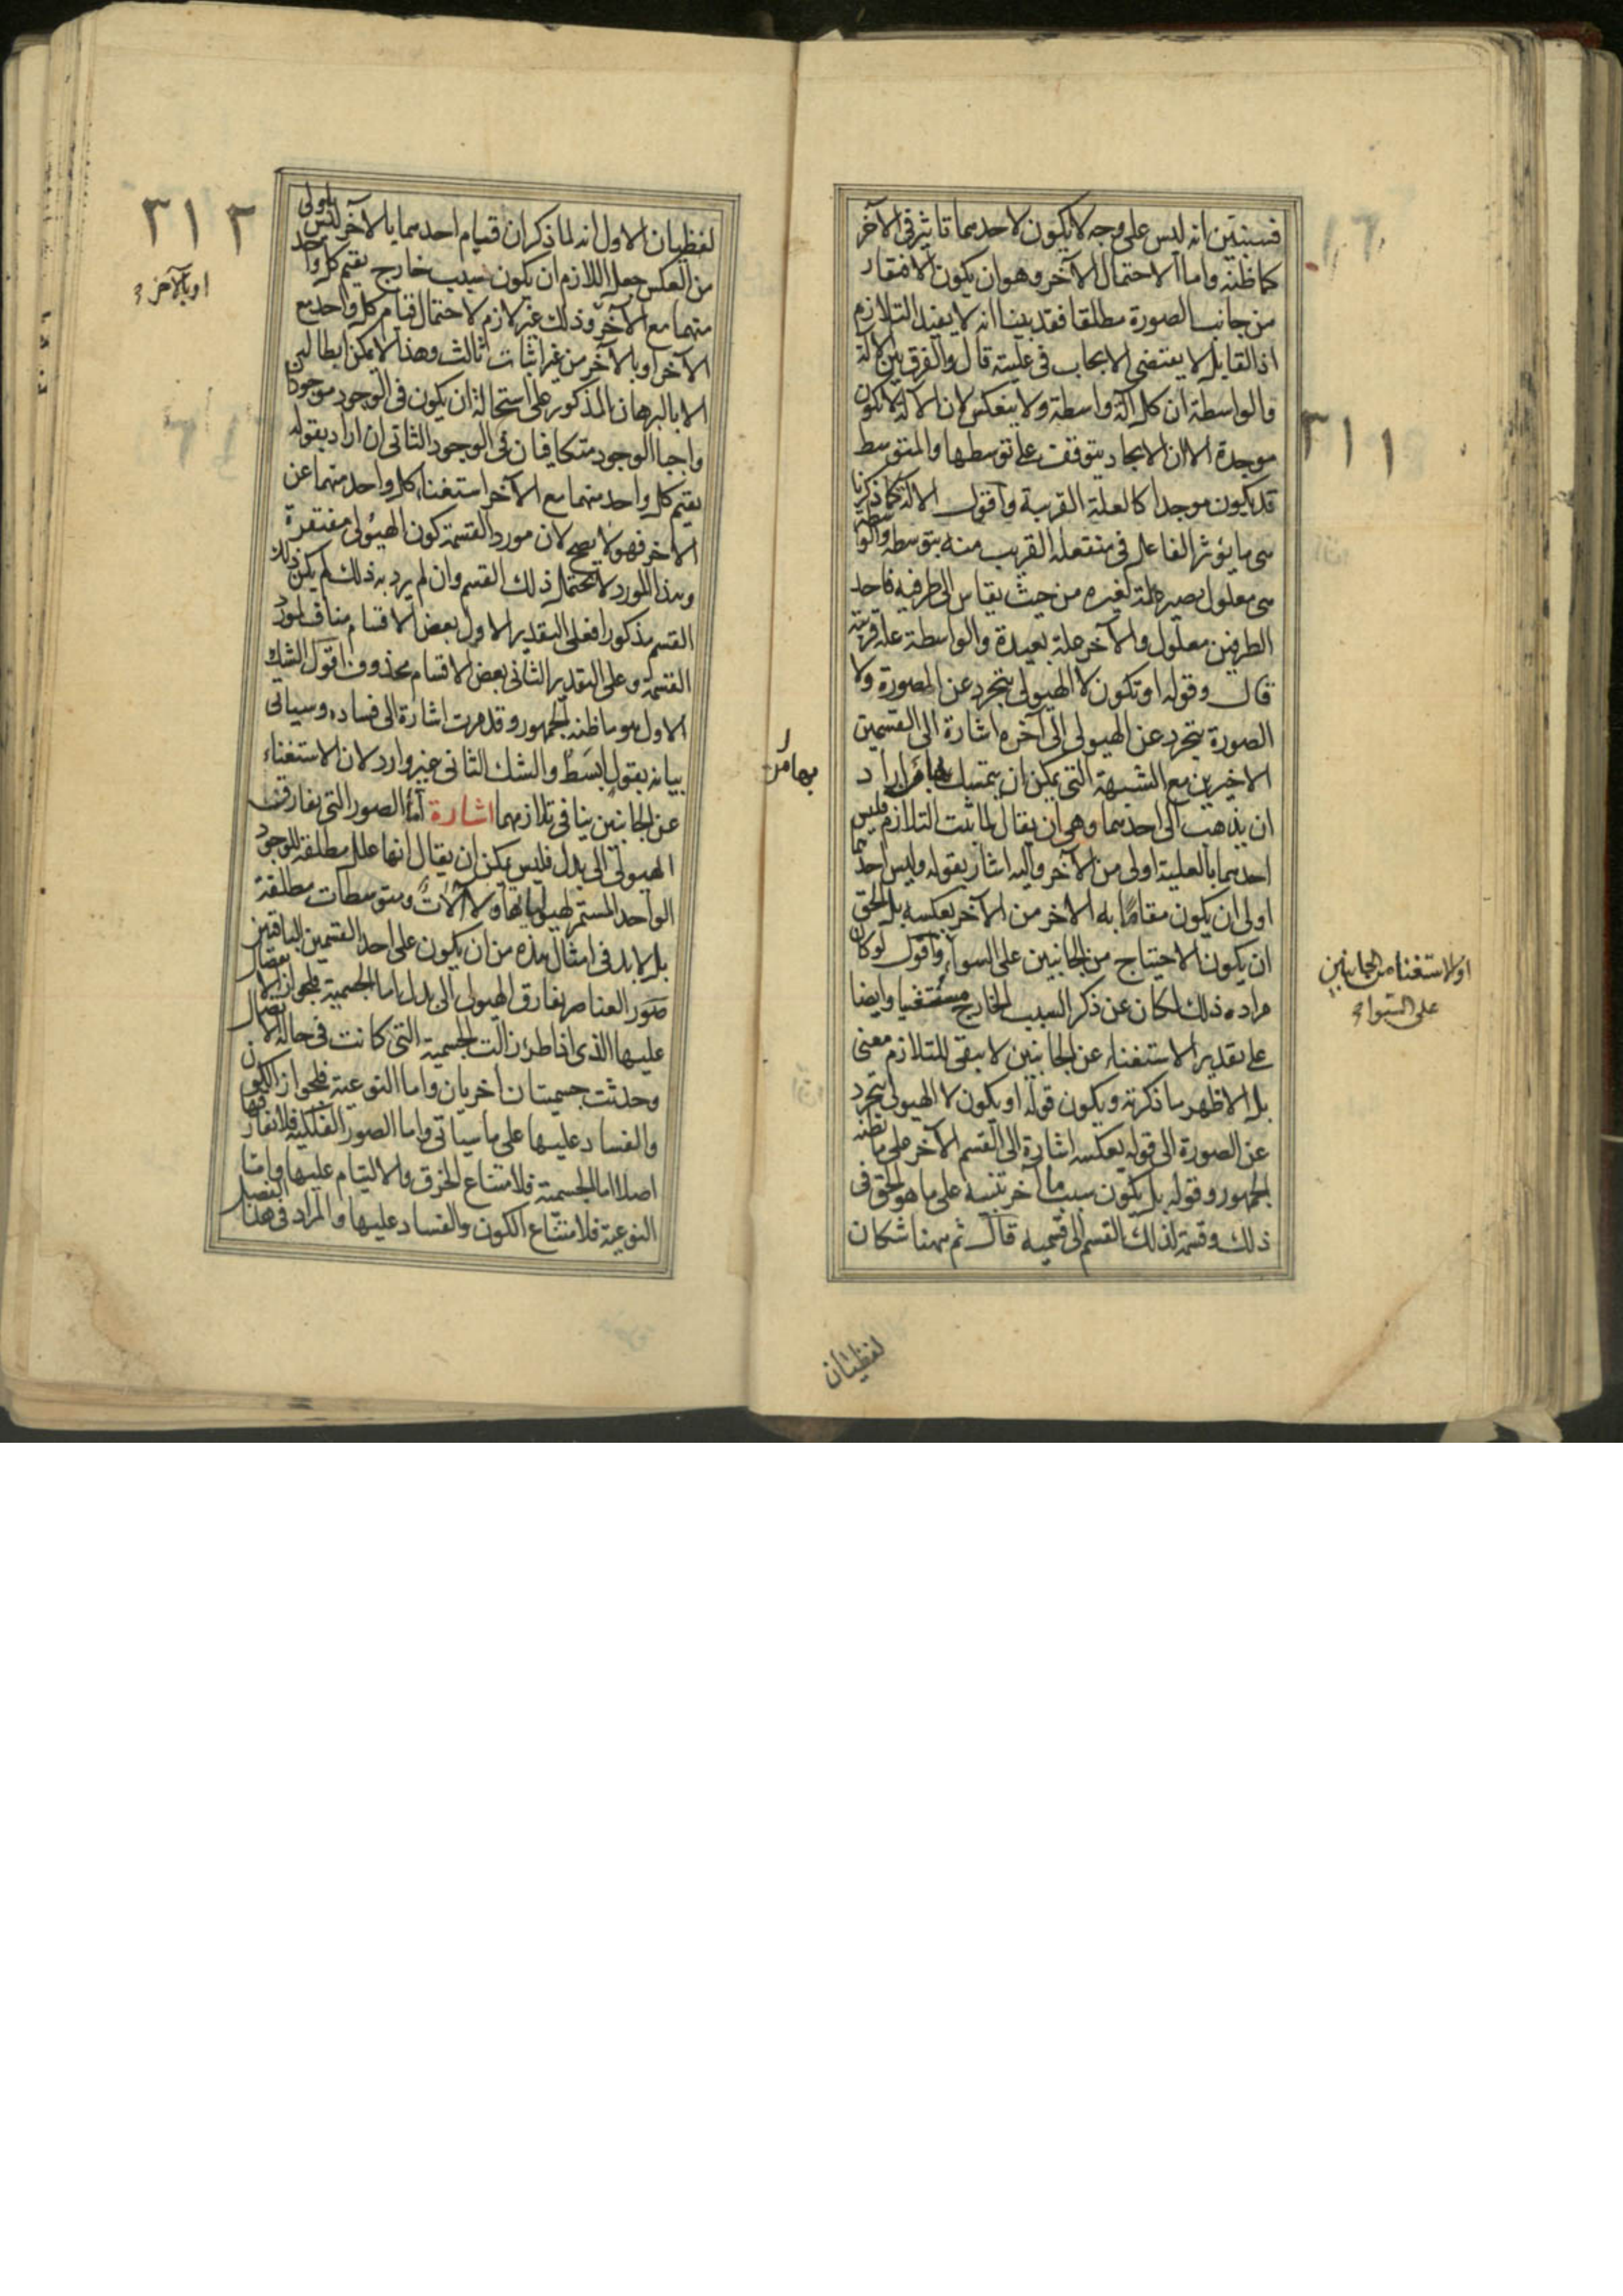 فسنبين انه ليس على وجه لا يكون لاحدهما تاثير فى الآخر
كما ظنه واما الاحتمال الآخر وهو ان يكون الافتقار
من جانب الصورة مطلقا فقد بينا انه لا يفيد التلازم
اذ القابل لا يقتضى الايجاب فى علية قال والفرق بين الآلة
والواسطة ان كل آلة واسطة ولا ينعكس لان الآلة لا تكون
موجدة الا ان الايجاد يتوقف على توسطها والمتوسط
٣١١
قد يكون موجدا كالعلة القريبة واقول الآلة كما ذكرنا
هى ما يؤثر الفاعل فى منفعله القريب منه بتوسطه والواسطة
هى معلول يصير علة لغيره من حيث يقاس الى طرفيه فاحد
الطرفين معلول والآخر علة بعيدة والواسطة علة قريبة
قال وقوله او تكون لا الهيولى تتجرد عن الصورة ولا
الصورة تتجرد عن الهيولى الى آخره اشارة الى القسمين
الاخيرين مع الشبهة التى يمكن ان يتمسك بها من اراد
بها من
ان يذهب الى احدهما وهى ان يقال لما ثبت التلازم فليس
احدهما بالعلية اولى من الآخر واليه اشار بقوله وليس احدهما
اولى ان يكون مقاما به الآخر من الآخر بعكسه بل الحق
ان يكون الاحتياج من الجانبين على السواء واقول لو كان
او الاستغنا من الجانبين
على السواء
مراده ذلك لكان عن ذكر السبب الخارج مستغنيا وايضا
على تقدير الاستغناء عن الجانبين لا يبقى للتلازم معنى
بل الاظهر ما ذكرته ويكون قوله او يكون لا الهيولى تتجرد
عن الصورة الى قوله بعكسه اشارة الى القسم الآخر على ما يظنه
الجمهور وقوله بل يكون سبب ما آخر تنبيه على ما هو الحق فى
ذلك وقسمة لذلك القسم الى قسميه قال ثم ههنا شكان
لفظيان
٣١٢
لفظيان الاول انه لما ذكر ان قيام احدهما بالآخر ليس باولى
من العكس جعل اللازم ان يكون سبب خارج يقيم كل واحد
او بالآخر
منهما مع الآخر وذلك غير لازم لاحتمال قيام كل واحد مع
الآخر او بالآخر من غير اثبات ثالث وهذا لا يمكن ابطاله
الا بالبرهان المذكور على استحالة ان يكون فى الوجود موجودان
واجبا الوجود متكافيان فى الوجود الثانى ان اراد بقوله
يقيم كل واحد منهما مع الآخر استغناء كل واحد منهما عن
الآخر فهو لا يصح لان مورد القسمة كون الهيولى مفتقرة
وهذا المورد لا يحتمل ذلك القسم وان لم يرد به ذلك لم يكن ذلك
القسم مذكورا فعلى التقدير الاول بعض الاقسام مناف لمورد
القسمة وعلى التقدير الثانى بعض الاقسام محذوف اقول الشك
الاول هو ما ظنه الجمهور وقد مرت اشارة الى فساده وسياتى
بيانه بقول ابسط والشك الثانى غير وارد لان الاستغناء
عن الجانبين ينافى تلازمهما اشارة اما الصور التى تفارق
الهيولى الى بدل فليس يمكن ان يقال انها علل مطلقة للوجود
الواحد المستمر لهيولياتها ولا آلات ومتوسطات مطلقة
بل لا بد فى امثال هذه من ان يكون على احد القسمين الباقيين
صور العناصر تفارق الهيولى الى بدل اما الجسمية فلجواز الانفصال
عليها الذى اذا طرئ زالت الجسمية التى كانت فى حالة الاتصال
وحدثت جسميتان اخريان واما النوعية فلجواز الكون
والفساد عليها على ما سياتى واما الصور الفلكية فلا تفارقها
اصلا اما الجسمية فلامتناع الخرق والالتيام عليها واما
النوعية فلامتناع الكون والفساد عليها والمراد فى هذا الفصل